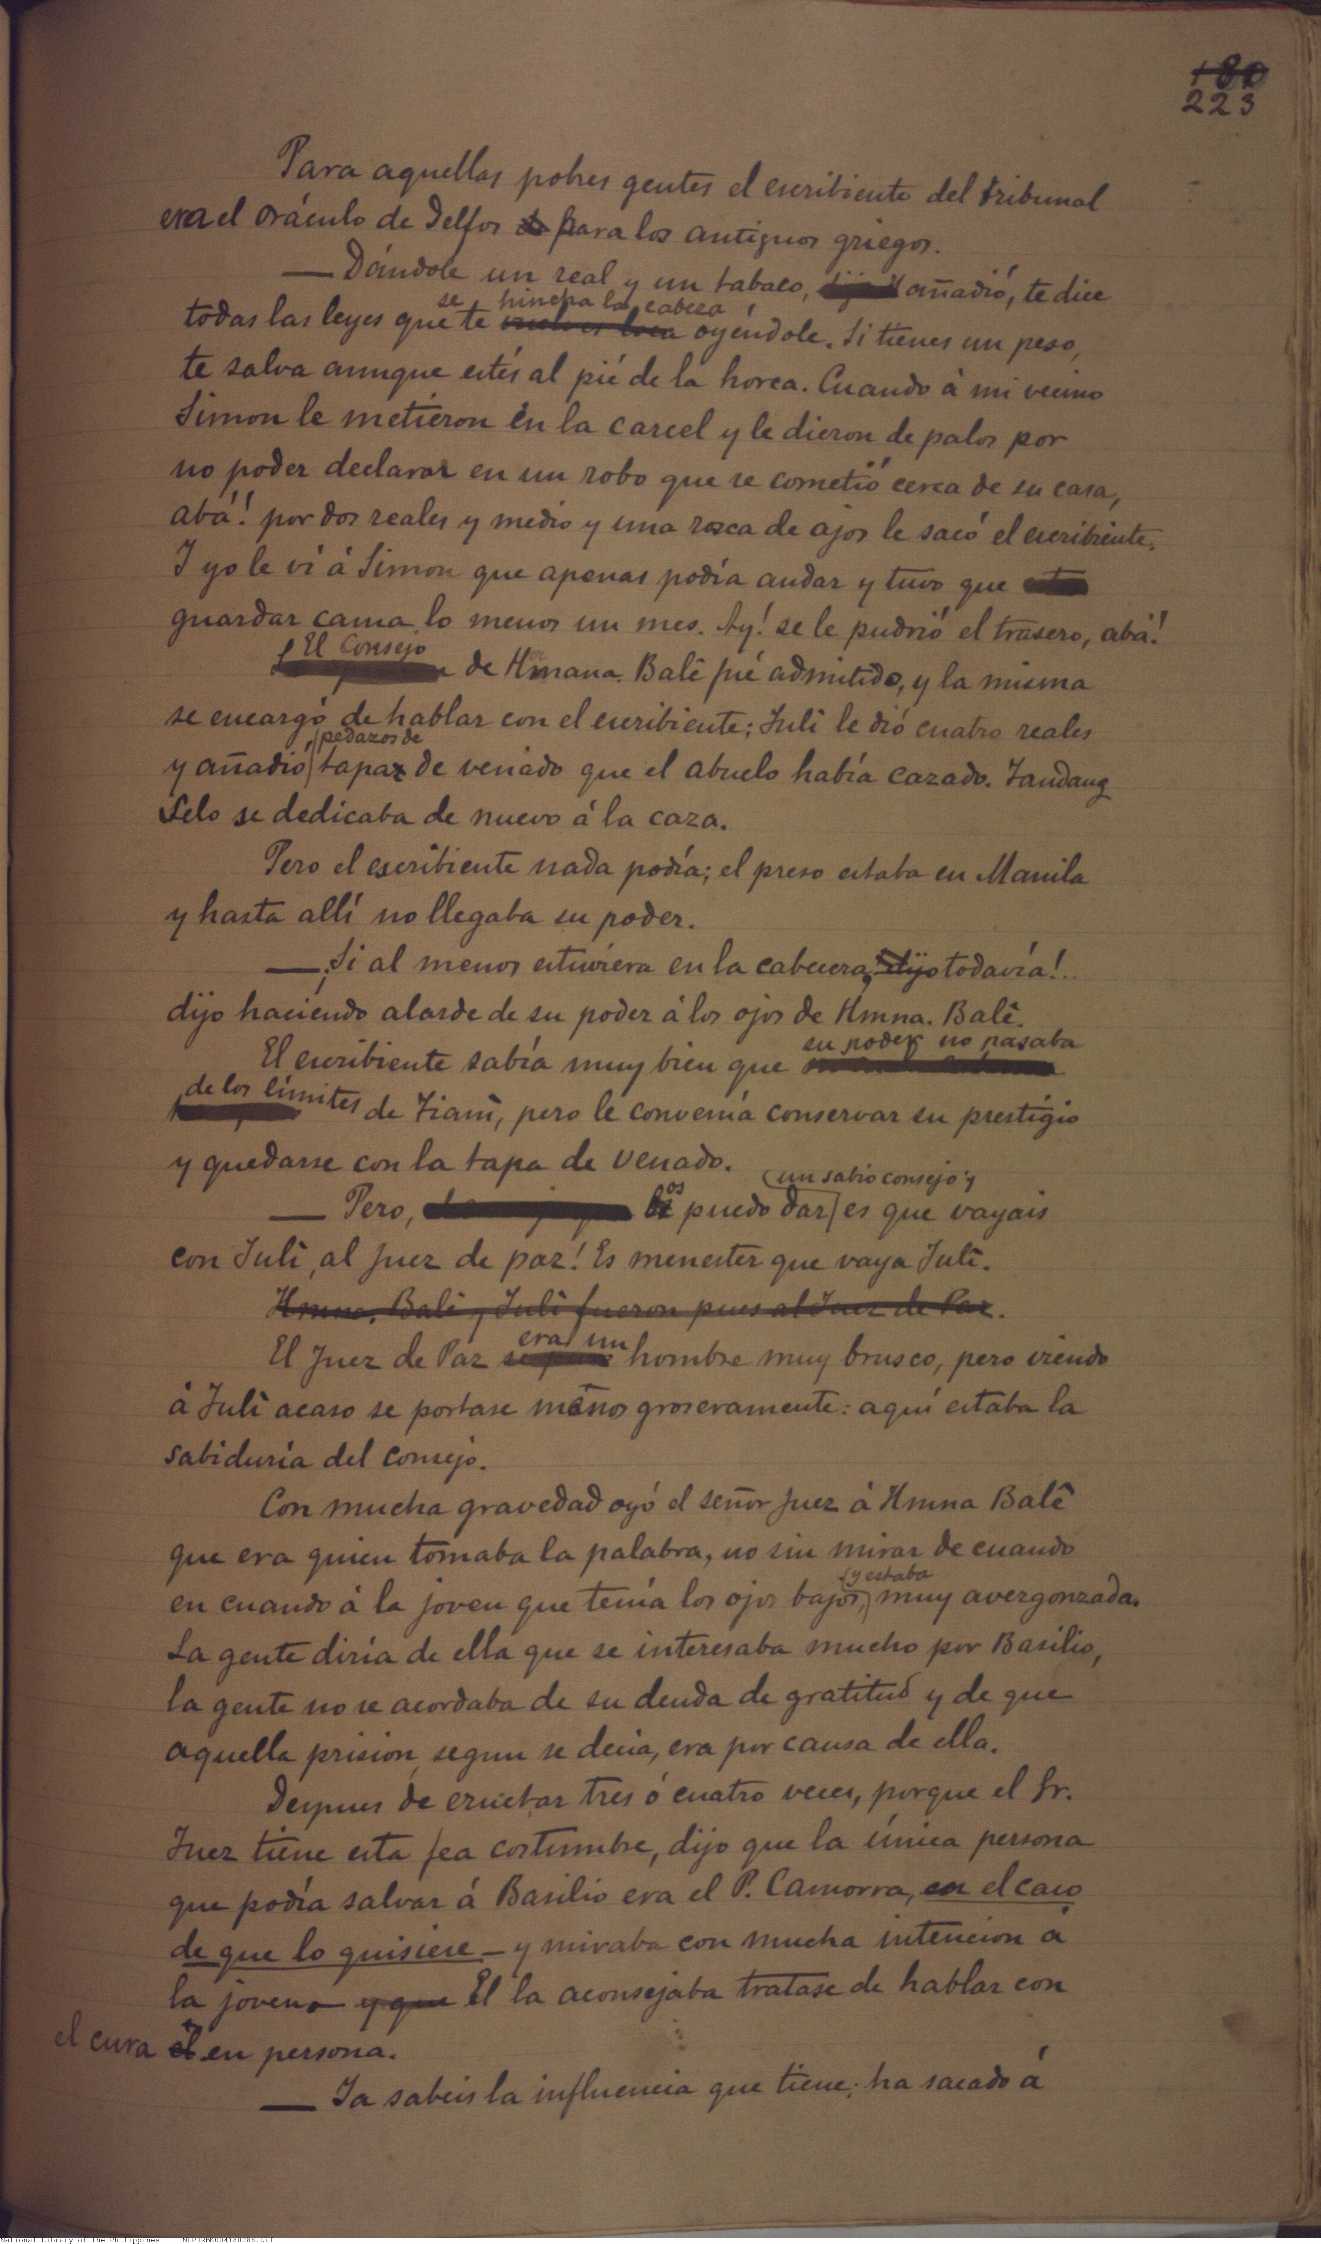 180
223
Para aquellas pobres gentes el escribiente del tribunal
era el oráculo de Delfos para los antiguos griegos.
— Dándole un real y un tabaco, añadió, te dice
se hincha la cabeza
todas las leyes que te oyéndole. Si tienes un peso,
te salva aunque estés al pié de la horca. Cuando á mi vecino
Simon le metieron en la carcel y le dieron de palos por
no poder declarar en un robo que se cometió cerca de su casa,
abá! por dos reales y medio y una rosca de ajos le sacó el escribiente.
Y yo le ví á Simon que apenas podía andar y tuvo que
guardar cama lo menos un mes. Ay! se le pudrió el trasero, abá!
El Consejo
de Hmana. Balî fué admitido, y la misma
se encargó de hablar con el escribiente; Julî le dió cuatro reales
pedazos de
y añadió tapa de venado que el abuelo había cazado. Tandang
Selo se dedicaba de nuevo á la caza.
Pero el escribiente nada podía; el preso estaba en Manila
y hasta allí no llegaba su poder.
— ¡Si al menos estuviera en la cabecera, dijo todavía!..
dijo haciendo alarde de su poder á los ojos de Hmna. Balî.
su poder no pasaba
El escribiente sabía muy bien que
de los límites
de Tianì, pero le convenía conservar su prestigio
y quedarse con la tapa de venado.
un sabio consejo y
— Pero, os puedo dar es que vayais
con Julî, al juez de paz! Es menester que vaya Julî.
Hmna. Balî y Julî fueron pues al Juez de Paz.
era un
El Juez de Paz hombre muy brusco, pero viendo
á Julî acaso se portase menos groseramente: aquí estaba la
sabiduría del consejo.
Con mucha gravedad oyó el señor juez á Hmna Balî
que era quien tomaba la palabra, no sin mirar de cuando
y estaba
en cuando á la joven que tenía los ojos bajos, muy avergonzada.
La gente diría de ella que se interesaba mucho por Basilio,
la gente no se acordaba de su deuda de gratitud y de que
aquella prision, segun se decia, era por causa de ella.
Despues de eructar tres ó cuatro veces, porque el Sr.
Juez tiene esta fea costumbre, dijo que la única persona
que podía salvar á Basilio era el P. Camorra, en el caso
de que lo quisiese — y miraba con mucha intencion á
la joven. y que El la aconsejaba tratase de hablar con
el cura en persona.
— Ya sabeis la influencia que tiene; ha sacado á